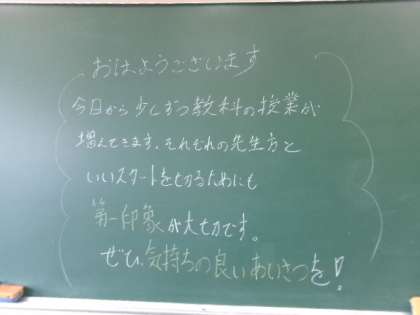 おはようございます
今日から少しずつ教科の授業が
増えてきます。それぞれの先生方と
いいスタートを切るためにも
第一印象が大切です。
ぜひ、気持ちの良いあいさつを!